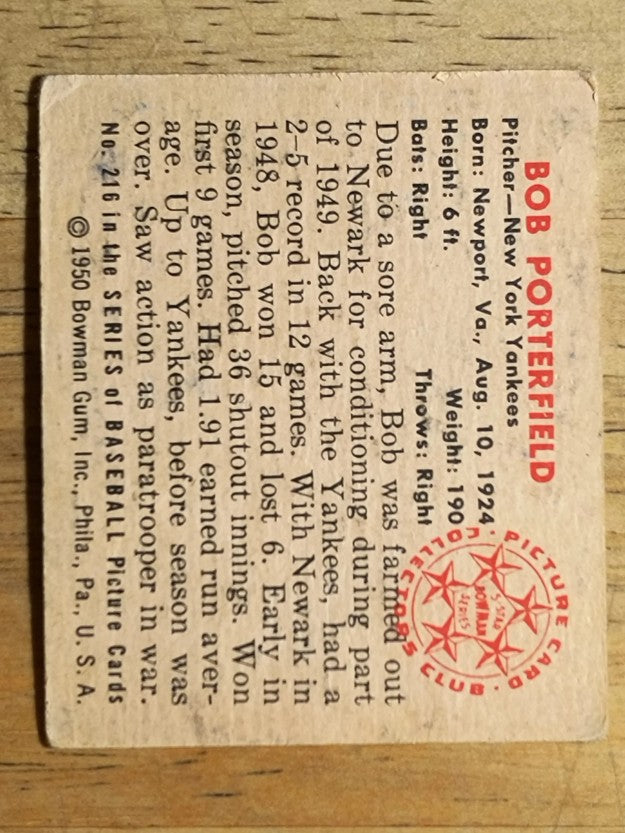 BOB PORTERFIELD
Pitcher—New York Yankees
Born: Newport, Va., Aug. 10, 1924
Height: 6 ft. Weight: 190
Bats: Right Throws: Right
Due to a sore arm, Bob was farmed out
to Newark for conditioning during part
of 1949. Back with the Yankees, had a
2–5 record in 12 games. With Newark in
1948, Bob won 15 and lost 6. Early in
season, pitched 36 shutout innings. Won
first 9 games. Had 1.91 earned run aver-
age. Up to Yankees, before season was
over. Saw action as paratrooper in war.
No: 216 in the SERIES of BASEBALL Picture Cards
© 1950 Bowman Gum, Inc., Phila., Pa., U. S. A.
PICTURE CARD · COLLECTORS CLUB ·
5-STAR
BOWMAN
SERIES